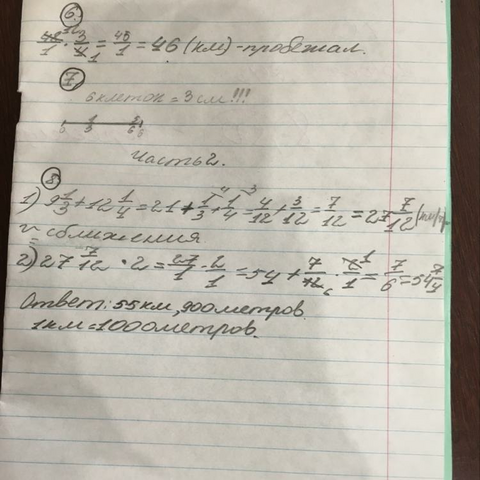 6
48/1 · 3/4 = 45/1 = 46 (км) - пробежал.
7
6 клеток = 3 см!!!
Часть 2.
8
1) 9 1/3 + 12 1/4 = 21 + 1/3 + 1/4 = 4/12 + 3/12 = 7/12 = 27 7/12
v сближения
2) 27 7/12 · 2 = 27/1 · 2/1 = 54 + 7/12 · 2/1 = 7/6 = 54 7/4
Ответ: 55 км, 900 метров.
1 км = 1000 метров.